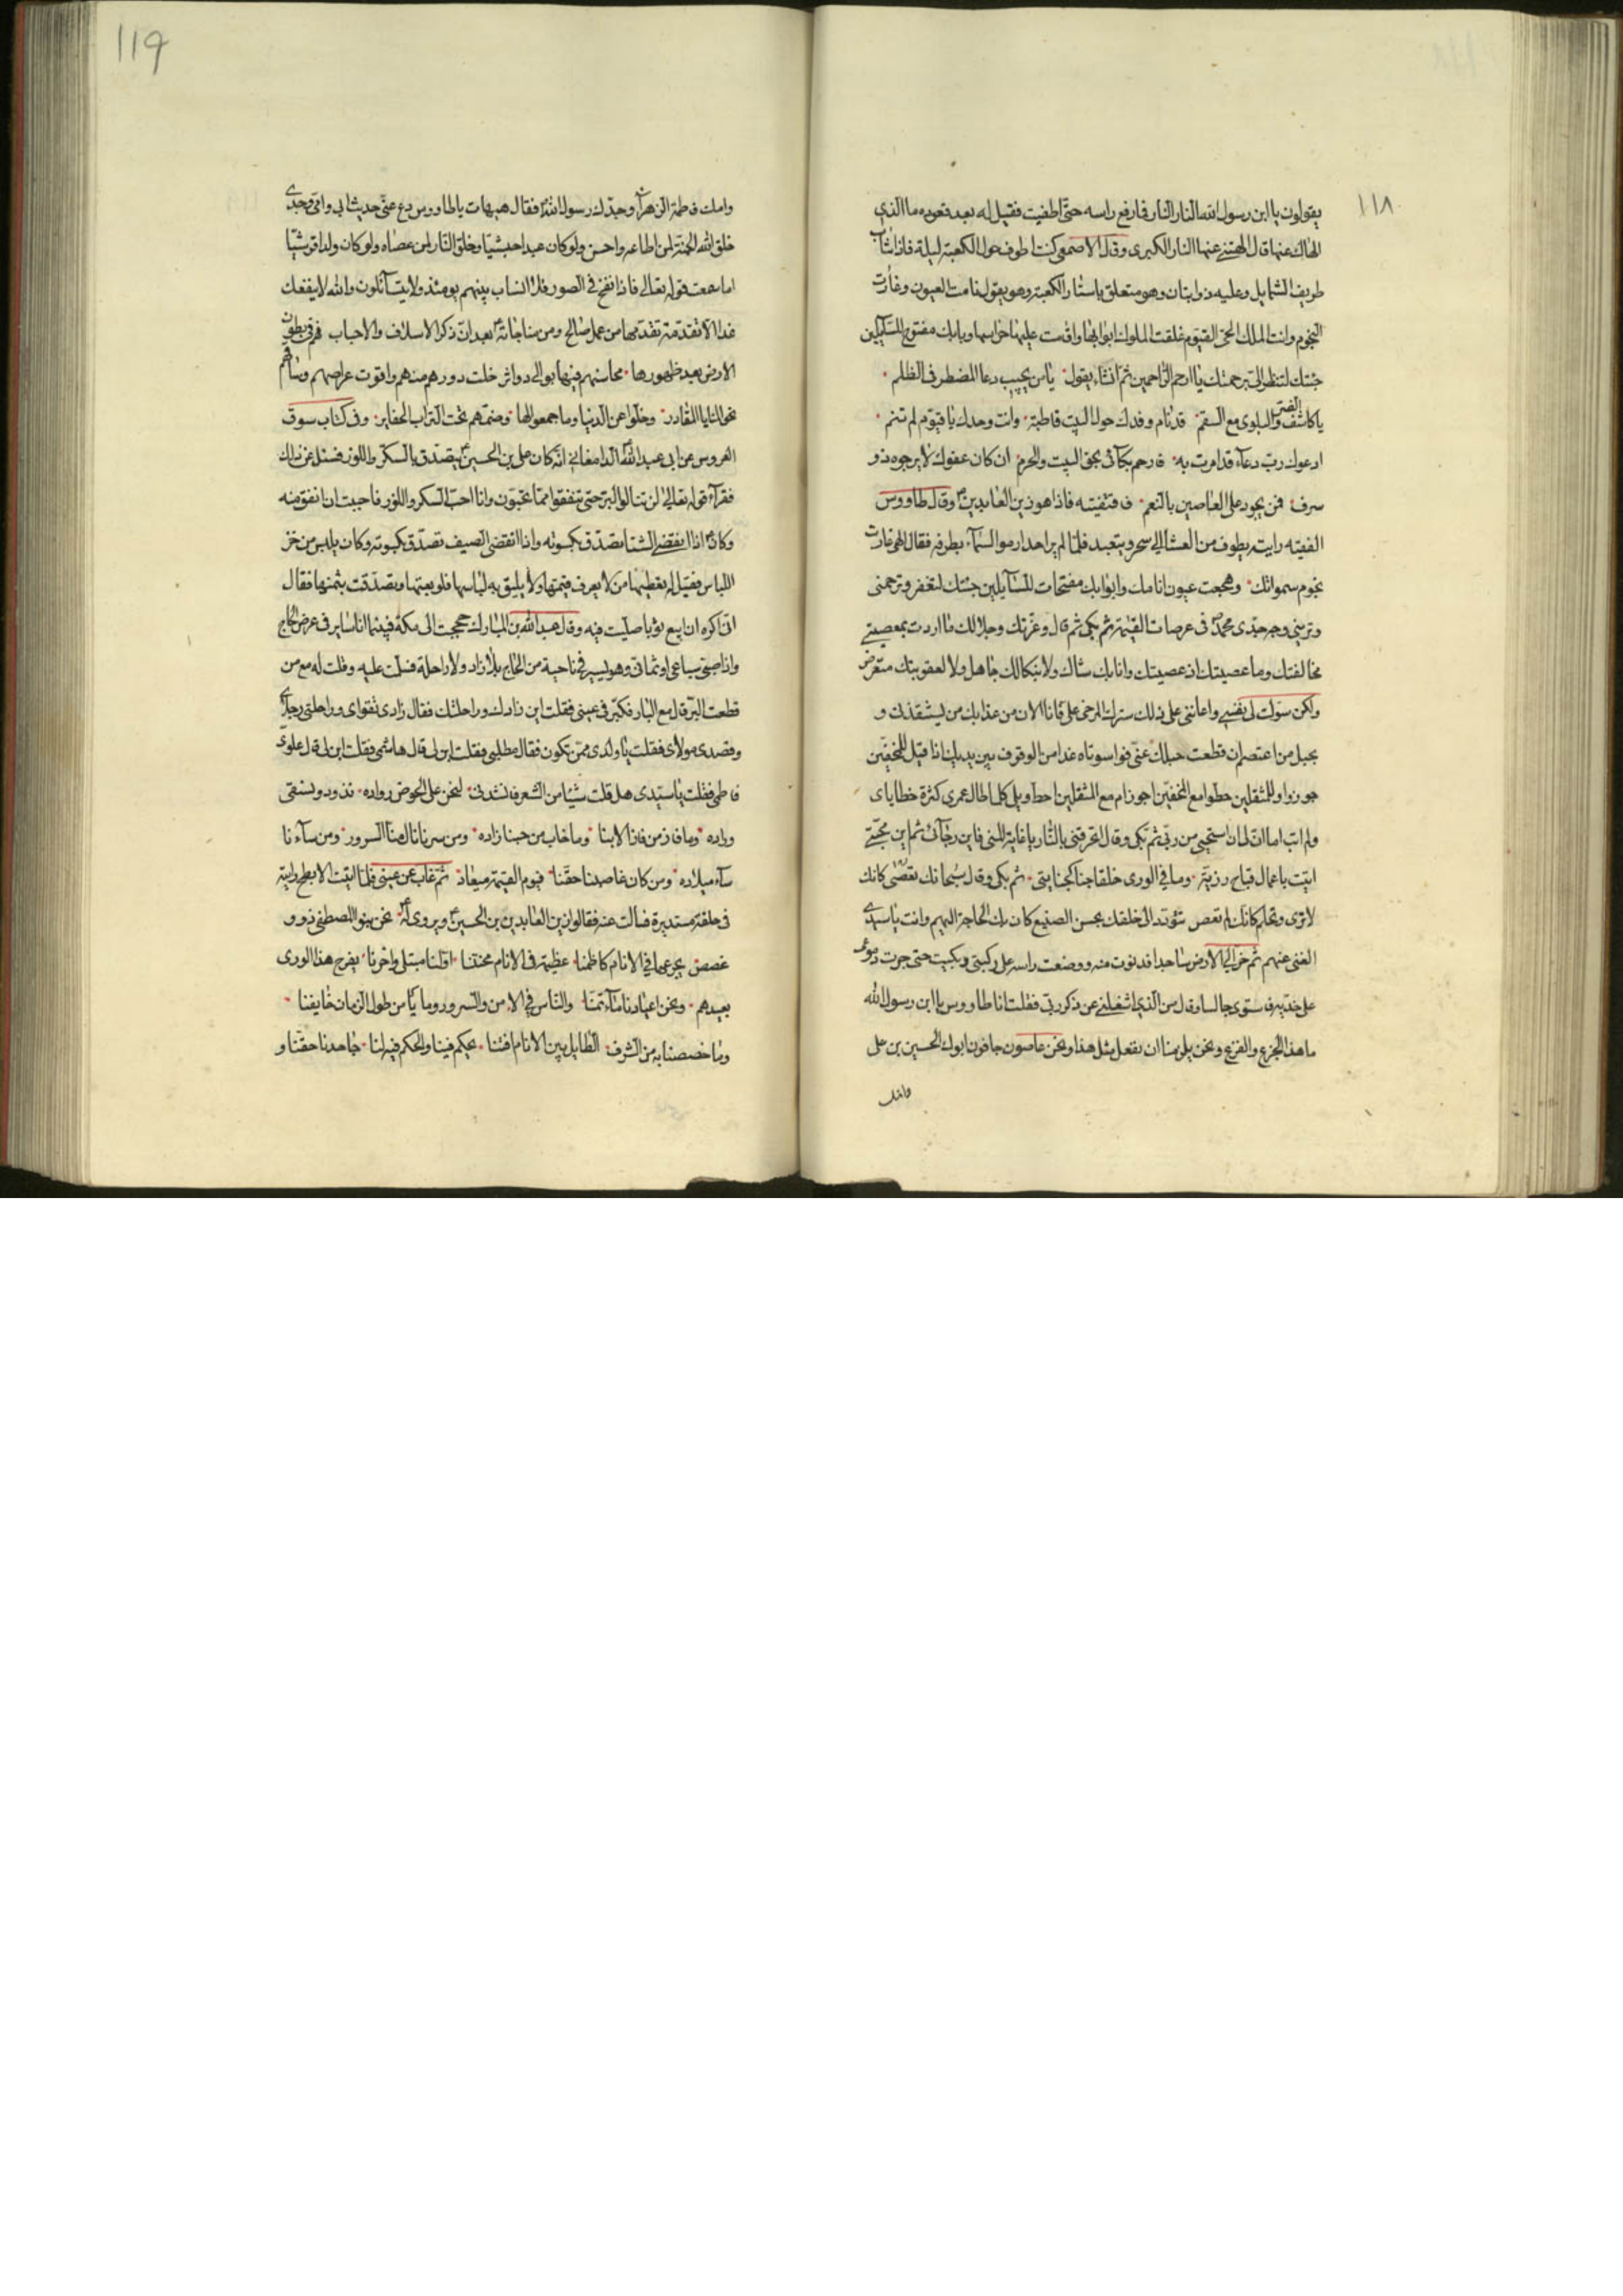 ١١٨
يقولون يا ابن رسول الله النار النار فما رفع راسه حتى اطفيت فقيل له بعد قعوده ما الذي
الهاك عنها قال الهتني عنها النار الكبرى وقال الاصمعي كنت اطوف حول الكعبة ليلة فاذا شاب
ظريف الشمايل وعليه ذوابتان وهو متعلق باستار الكعبة وهو يقول نامت العيون وغارت
النجوم وانت الملك الحي القيوم غلقت الملوك ابوابها واقامت عليها حراسها وبابك مفتوح للسائلين
جئتك لتنظر الي برحمتك يا ارحم الراحمين ثم انشاء يقول يا من يجيب دعا المضطر في الظلم
يا كاشف الضر والبلوى مع السقم قد نام وفدك حول البيت قاطبة وانت وحدك يا قيوم لم تنم
ادعوك رب دعاء قد امرت به فارحم بكائي بحق البيت والحرم ان كان عفوك لا يرجوه ذو
سرف فمن يجود على العاصين بالنعم فاقتفيته فاذا هو زين العابدين وقال طاووس
الفقيه رايته يطوف من العشا الى سحر ويتعبد فلما لم ير احدا رمق السماء بطرفه فقال الهي غارت
نجوم سمواتك وهجعت عيون انامك وابوابك مفتحات للسائلين جئتك لتغفر وترحمني
وتريني وجه جدي محمد في عرصات القيمة ثم بكى ثم قال وعزتك وجلالك ما اردت بمعصيتي
مخالفتك وما عصيتك اذ عصيتك وانا بك شاك ولا بنكالك جاهل ولا لعقوبتك متعرض
ولكن سولت لي نفسي واعانني على ذلك سترك المرخى علي فانا الان من عذابك من يستنقذني و
بحبل من اعتصم ان قطعت حبلك عني فواسوتاه غدا من الوقوف بين يديك اذا قيل للمخفين
جوزوا وللمثقلين حطوا امع المخفين اجوز ام مع المثقلين احط ويلي كلما طال عمري كثرة خطاياي
ولم اتب اما ان لي ان استحيي من ربي ثم بكى وقال اتحرقني بالنار يا غاية المنى فاين رجائي ثم اين محبتي
اتيت باعمال قباح رزية وما في الورى خلقا جنا كجنايتي ثم بكى وقال سبحانك تعصى كانك
لا ترى وتحلم كانك لم تعص تتودد الى خلقك بحسن الصنيع كان بك الحاجة اليهم وانت يا سيدي
الغني عنهم ثم خر الى الارض ساجدا فدنوت منه ووضعت راسه على ركبتي وبكيت حتى جرت دموعي
على خديه فاستوى جالسا وقال من الذي اشغلني عن ذكر ربي فقلت انا طاووس يا ابن رسول الله
ما هذا الجزع والفزع ونحن يلزمنا ان نفعل مثل هذا ونحن عاصون جافون ابوك الحسين بن علي
وامك
119
وامك فاطمة الزهراء وجدك رسول الله فقال هيهات يا طاووس دع عني حديث ابي وامي وجدي
خلق الله الجنة لمن اطاعه واحسن ولو كان عبدا حبشيا وخلق النار لمن عصاه ولو كان ولدا قرشيا
اما سمعت قوله تعالى فاذا نفخ في الصور فلا انساب بينهم يومئذ ولا يتسائلون والله لا ينفعك
غدا الا تقدمة تقدمها من عمل صالح ومن مناجاته بعد ان ذكر الاسلاف والاحباب فهم في بطون
الارض بعد ظهورها محاسنهم فيها بوالي دواثر خلت دورهم منهم واقوت عراصهم وساقهم
نحو المنايا المقادر وخلوا عن الدنيا وما جمعوا لها وضمتهم تحت التراب الحفاير وفي كتاب سوق
العروس عن ابي عبد الله الدامغاني انه كان علي بن الحسين يتصدق بالسكر واللوز فسئل عن ذلك
فقراء قوله تعالى لن تنالوا البر حتى تنفقوا مما تحبون وانا احب السكر واللوز فاحببت ان انفق منه
وكان اذا انقضى الشتا تصدق بكسوته واذا انقضى الصيف تصدق بكسوته وكان يلبس من خز
اللباس فقيل له تعطيها من لا يعرف قيمتها ولا يليق به لباسها فلو بعتها وتصدقت بثمنها فقال
اني اكره ان ابيع ثوبا صليت فيه وقال عبد الله بن المبارك حججت الى مكة فبينما انا ساير في عرض الحاج
واذا صبي سباعي او ثماني وهو يسير في ناحية من الحاج بلا زاد ولا راحلة فسلمت عليه وقلت له مع من
قطعت البر قال مع البار فكبر في عيني فقلت اين زادك وراحلتك فقال زادي تقواي وراحلتي رجلاي
وقصدي مولاي فقلت يا ولدي ممن تكون فقال مطلبي فقلت ابن لي قال هاشمي فقلت ابن لي قال علوي
فاطمي فقلت يا سيدي هل قلت شيئا من الشعر فانشدني لنحن على الحوض رواده نذود ونسقي
وراده وما فاز من فاز الا بنا وما خاب من حبنا زاده ومن سرنا نال منا السرور ومن سآءنا
سآء ميلاده ومن كان غاصبنا حقنا فيوم القيمة ميعاد ثم غاب عن عيني فلما اتيت الابطح رايته
في حلقة مستديرة فسالت عنه فقالوا زين العابدين بن الحسين ويروى له نحن بنو المصطفى ذوو
غصص يجرعها في الانام كاظمنا عظيمة في الانام محنتنا اولنا مبتلى واخرنا يفرح هذا الورى
بعيدهم ونحن اعيادنا مآتمنا والناس في الامن والسرور وما يامن طول الزمان خايفنا
وما خصصنا به من الشرف الطايل بين الانام افتنا يحكم فينا والحكم فيه لنا جاحدنا حقنا و